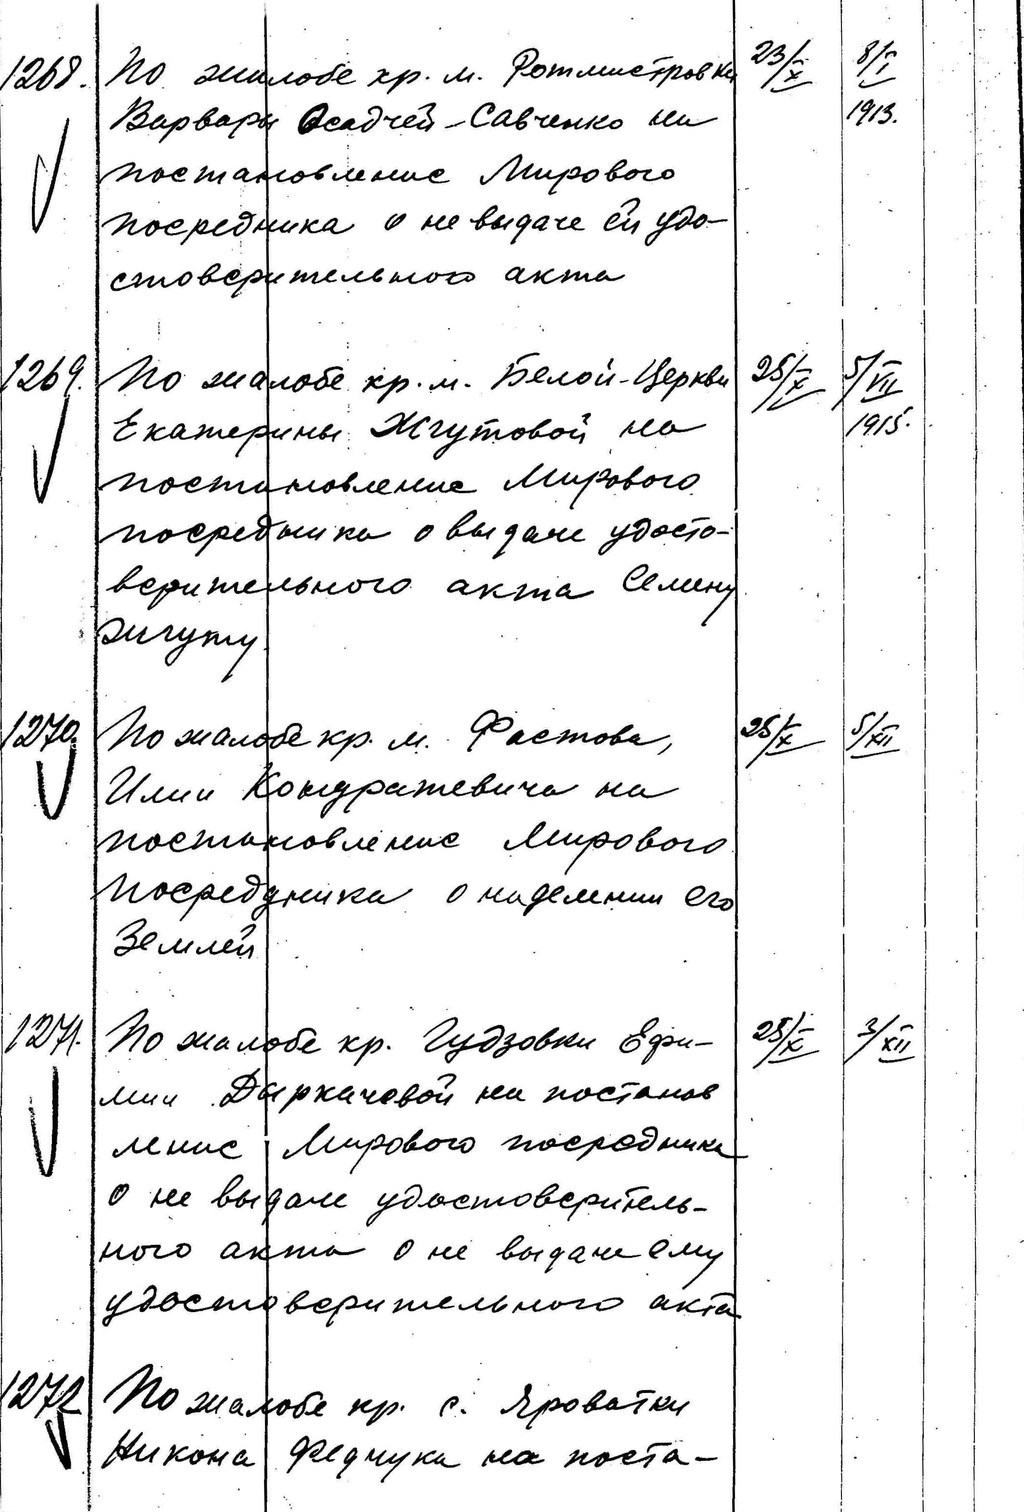 1268. По жалобе кр. м. Ротмистровки 23/X 8/I
Варвары Осадчей-Савченко на 1913.
постановление Мирового
посредника о не выдаче ей удо-
стоверительного акта
1269. По жалобе кр. м. Белой-Церкви 25/X 5/VII
Екатерины Жгутовой на 1915.
постановление Мирового
посредника о выдаче удосто-
верительного акта Семену
Жгуту
1270. По жалобе кр. м. Фастова, 25/X 5/XII
Илии Кондратевича на
постановление Мирового
посредника о наделении его
Землей
1271. По жалобе кр. Гудзовки Ефи- 25/X 3/XII
мии Дыркачевой на постанов
ление Мирового посредника
о не выдаче удостоверитель-
ного акта о не выдаче ему
удостоверительного акта
1272 По жалобе кр. с. Яроватки
Никона Федчука на поста-